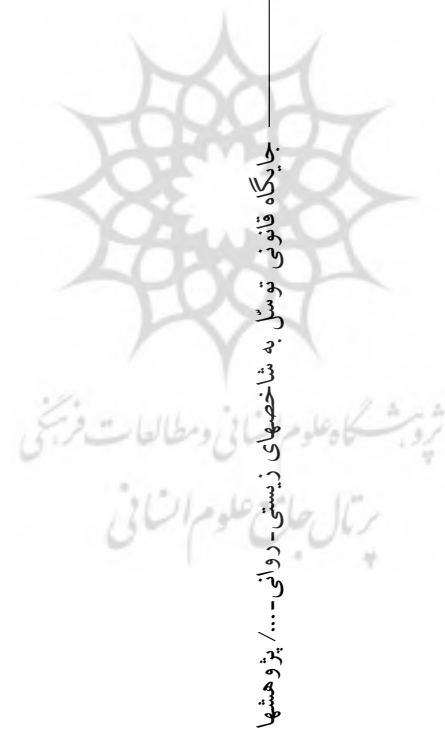 جایگاه قانونی توسّل به شاخصهای زیستی-روانی-.../ پژوهشها
پژوهشگاه علوم انسانی و مطالعات فرهنگی
پرتال جامع علوم انسانی